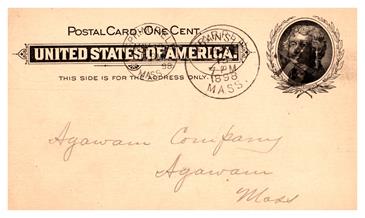 POSTAL CARD. ONE CENT.
UNITED STATES OF AMERICA.
THIS SIDE IS FOR THE ADDRESS ONLY.
98
MASS.
PM
1898
MASS.
Agawam Company
Agawam
Mass